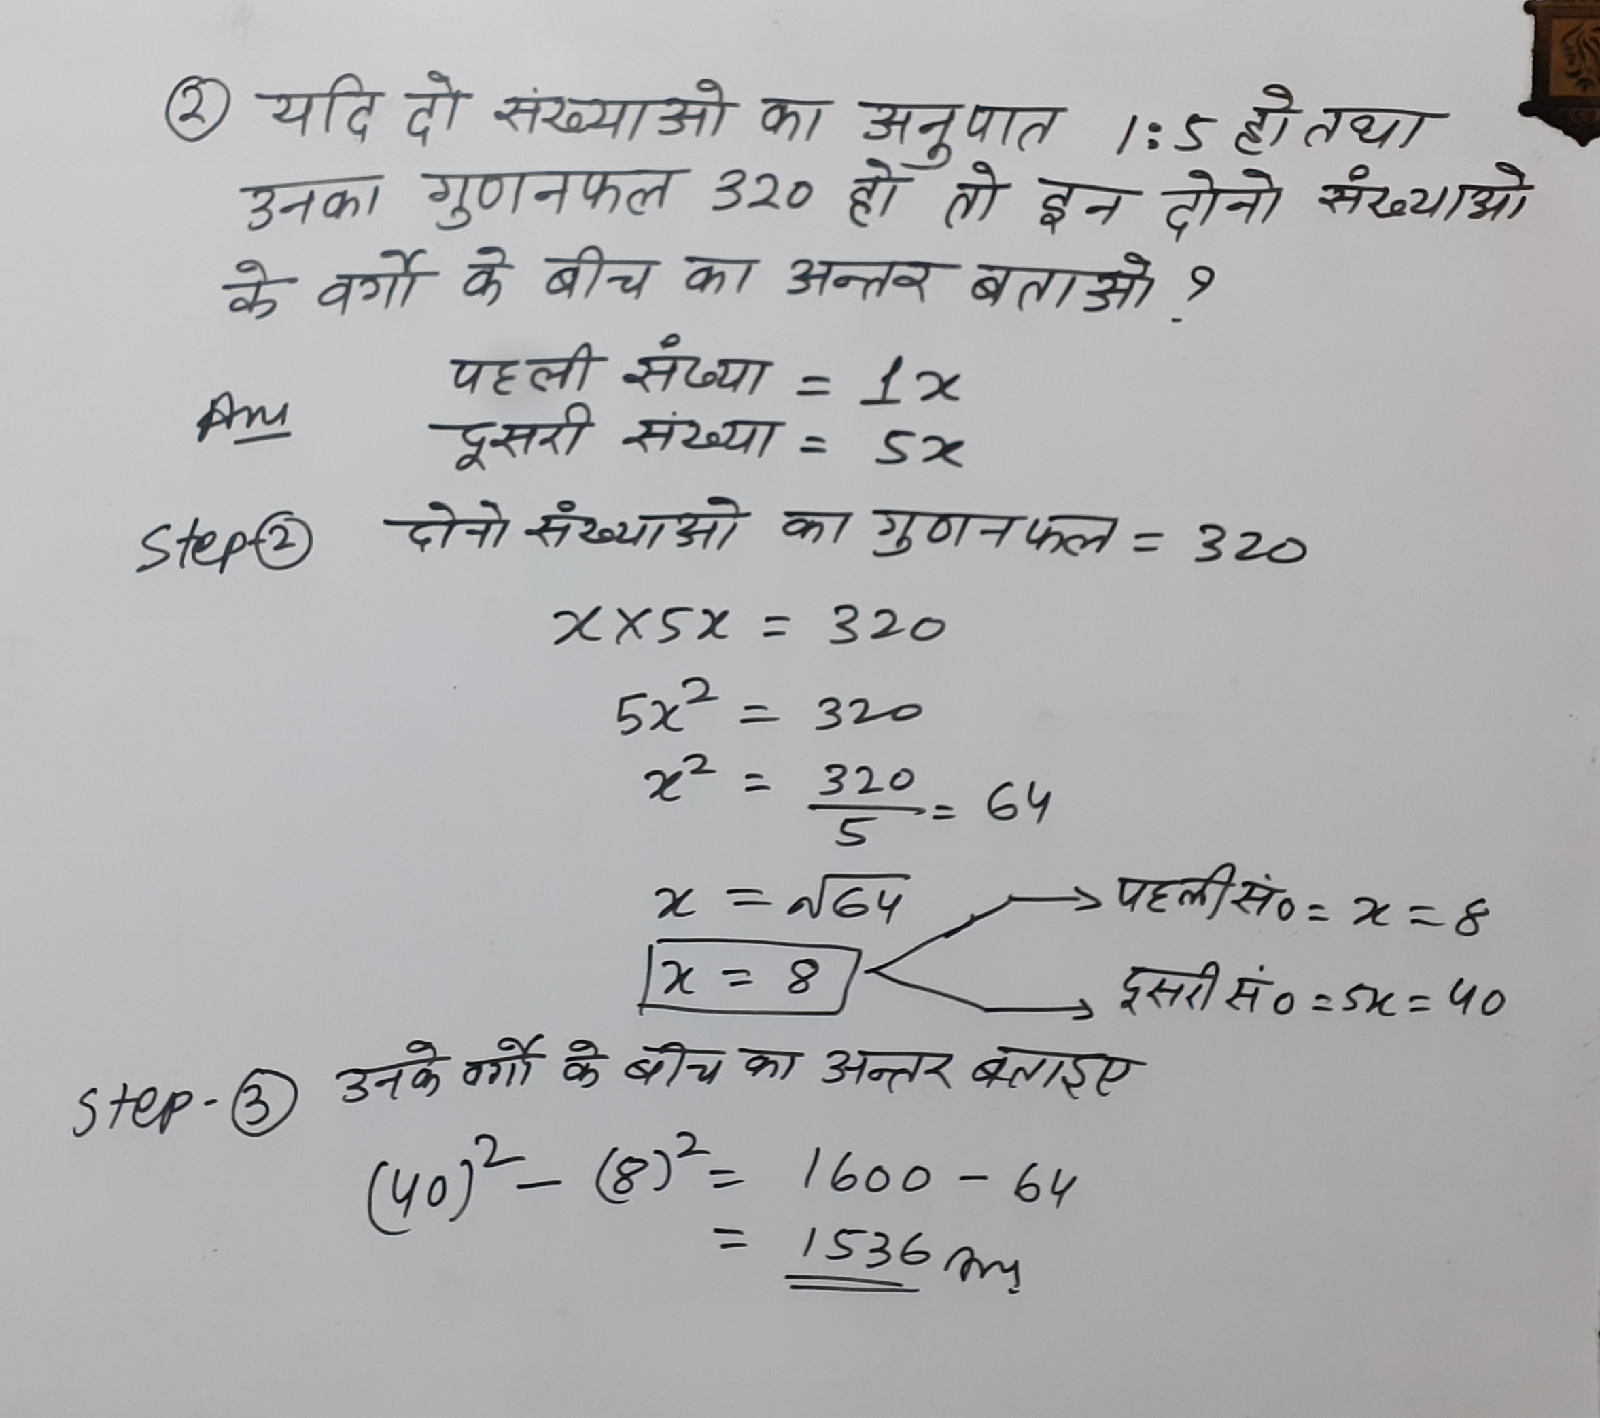 ② यदि दो संख्याओ का अनुपात 1:5 हो तथा
उनका गुणनफल 320 हो तो इन दोनो संख्याओ
के वर्गो के बीच का अन्तर बताओ ?
पहली संख्या = 1x
Ans दूसरी संख्या = 5x
Step-② दोनो संख्याओ का गुणनफल = 320
x×5x = 320
5x² = 320
x² = 320/5 = 64
x = √64 → पहली सं० = x = 8
x = 8 → दूसरी सं० = 5x = 40
Step-③ उनके वर्गो के बीच का अन्तर बताइए
(40)² - (8)² = 1600 - 64
= 1536 Ans